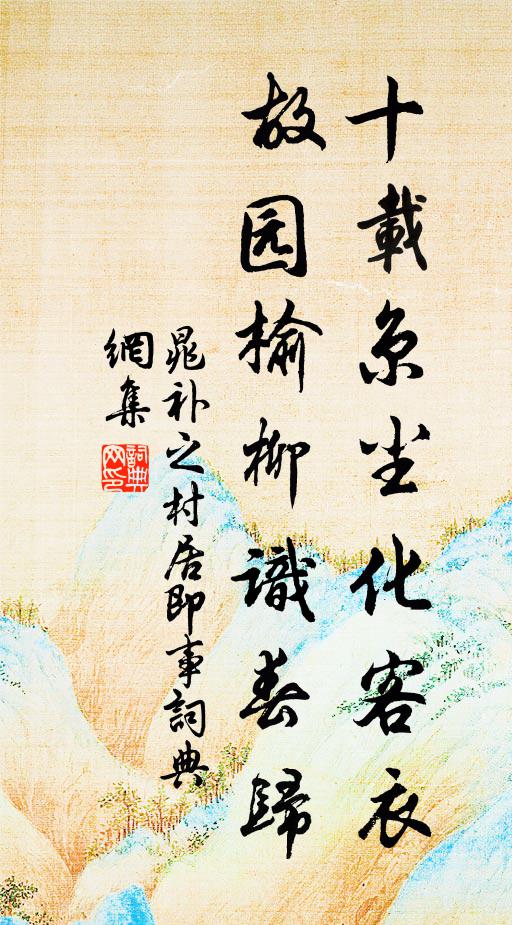 十載京尘化客衣
故园榆柳識春歸
晁补之村居即事詞典
網集
詞典网印